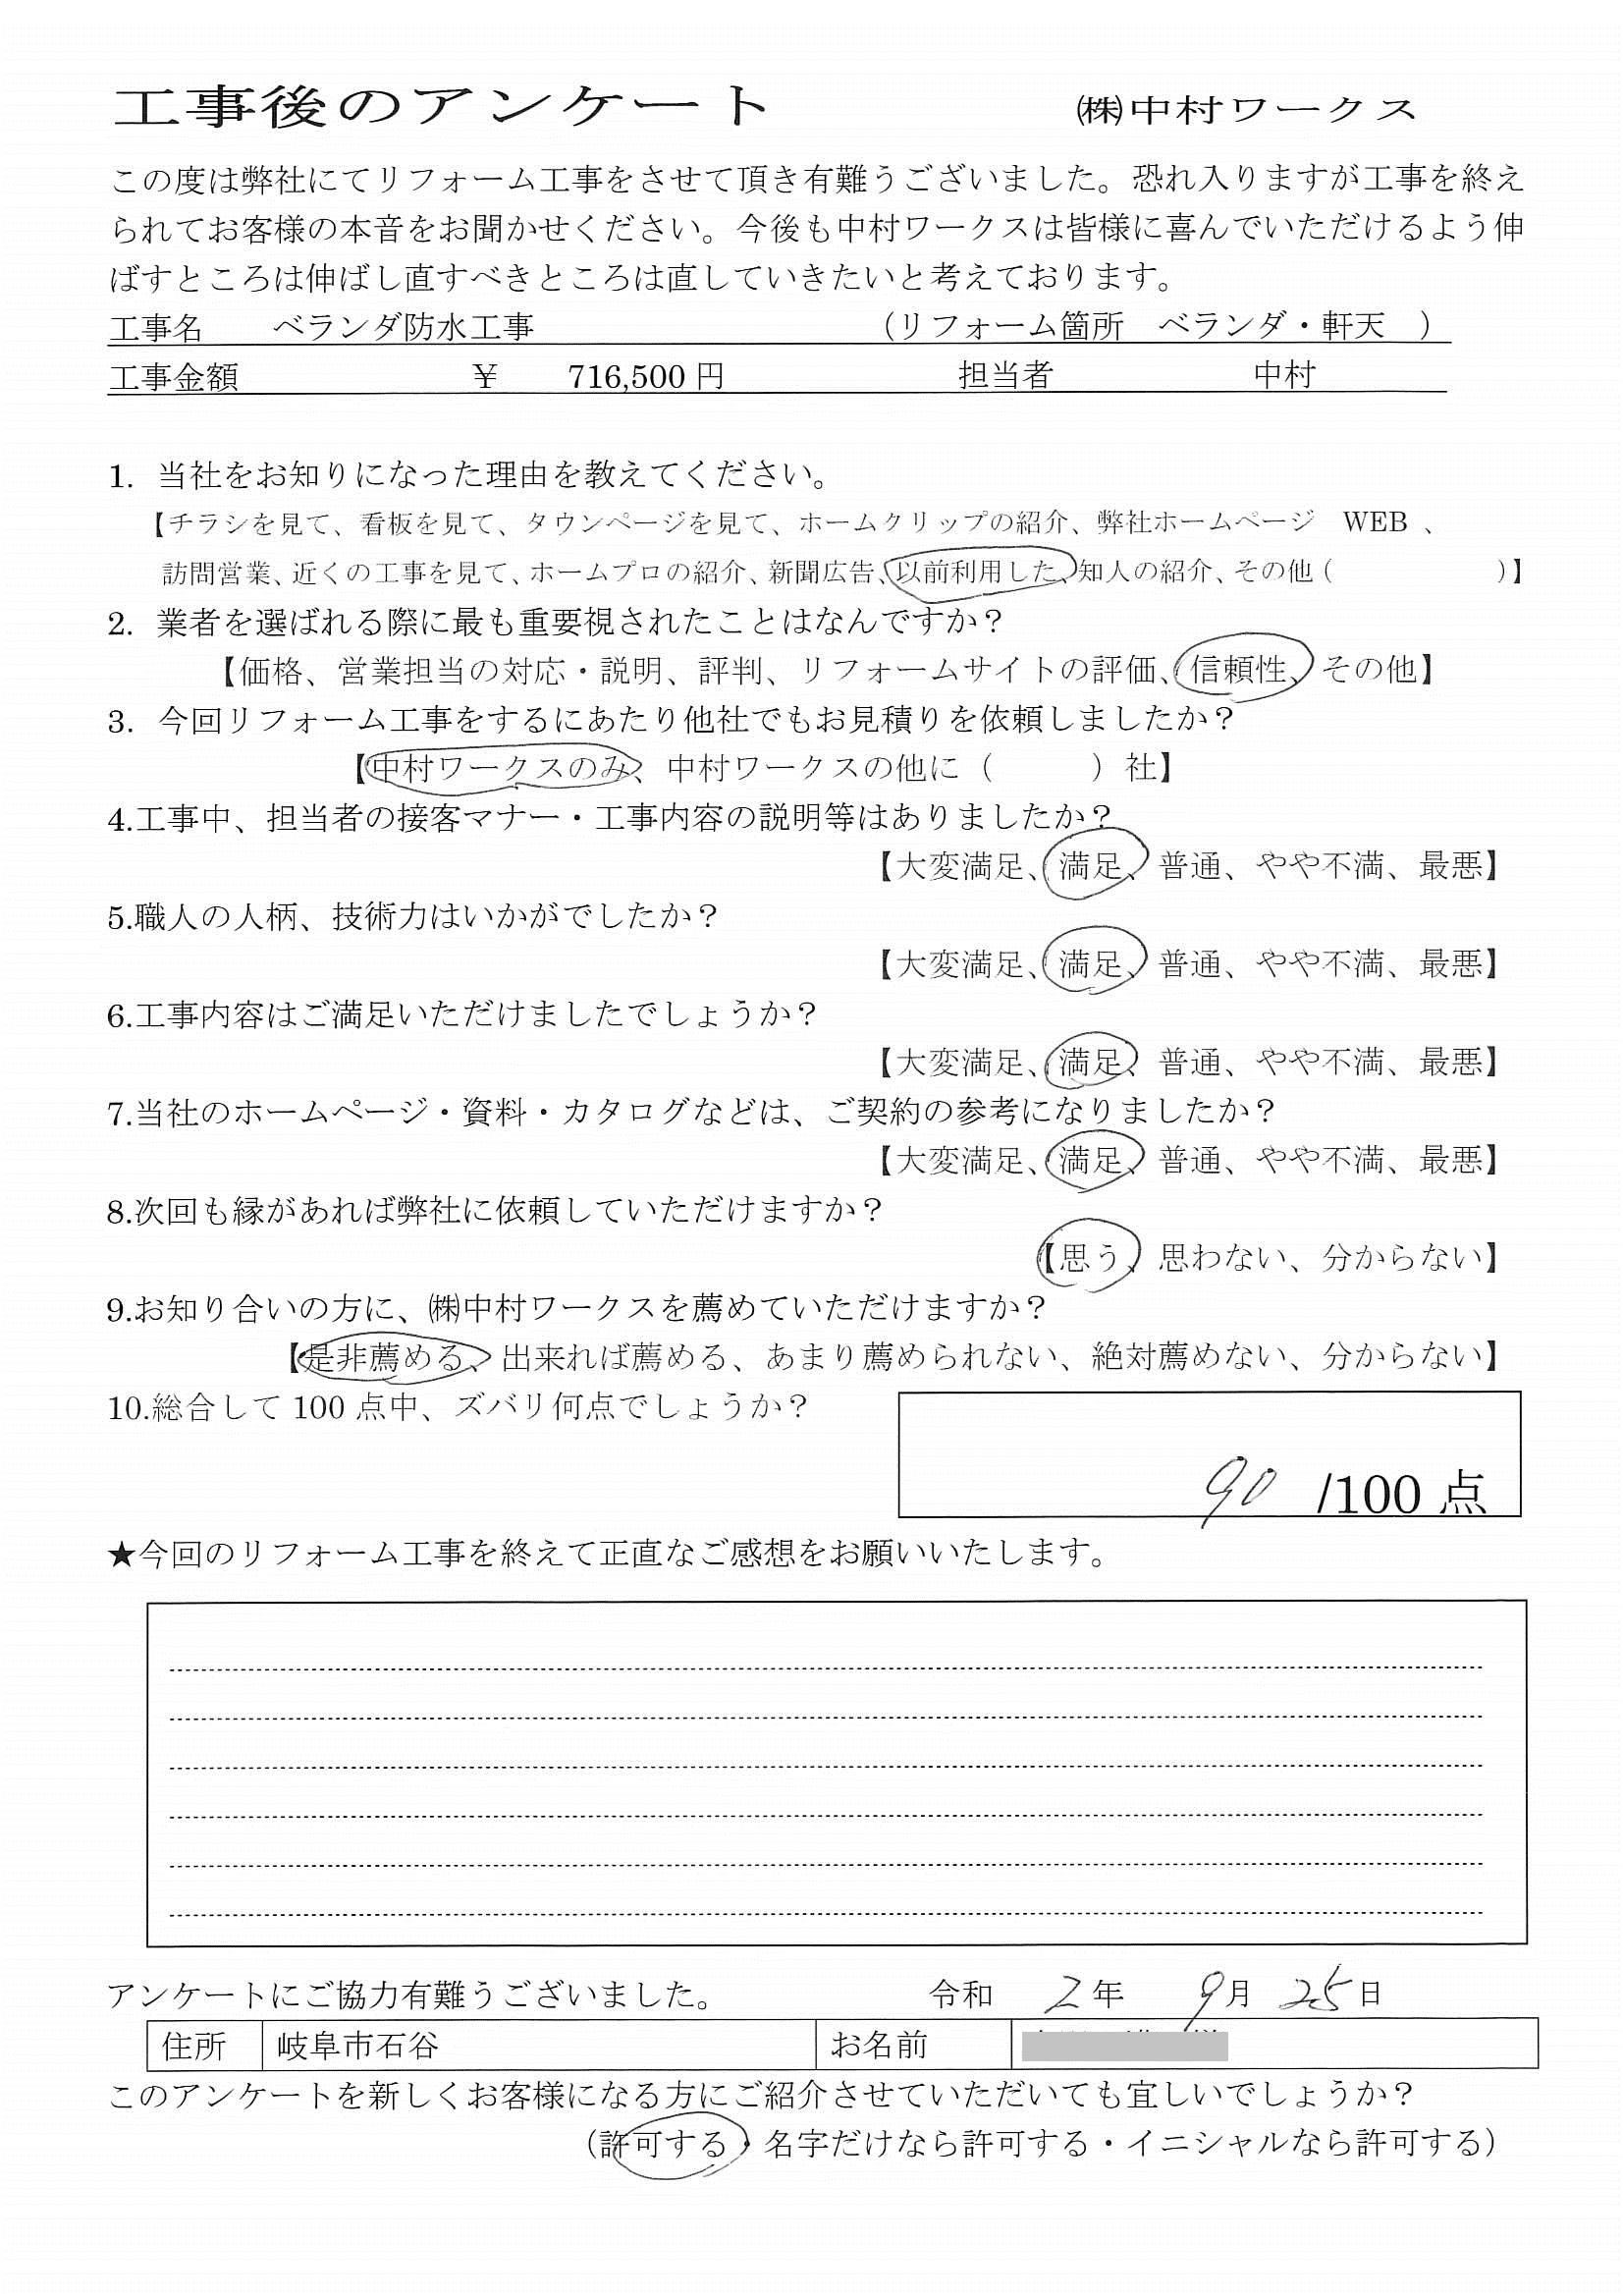 工事後のアンケート　㈱中村ワークス
この度は弊社にてリフォーム工事をさせて頂き有難うございました。恐れ入りますが工事を終え
られてお客様の本音をお聞かせください。今後も中村ワークスは皆様に喜んでいただけるよう伸
ばすところは伸ばし直すべきところは直していきたいと考えております。
工事名　ベランダ防水工事　（リフォーム箇所　ベランダ・軒天　）
工事金額　￥　716,500 円　担当者　中村
1. 当社をお知りになった理由を教えてください。
【チラシを見て、看板を見て、タウンページを見て、ホームクリップの紹介、弊社ホームページ　WEB 、
訪問営業、近くの工事を見て、ホームプロの紹介、新聞広告、以前利用した、知人の紹介、その他（　　　　　）】
2. 業者を選ばれる際に最も重要視されたことはなんですか？
【価格、営業担当の対応・説明、評判、リフォームサイトの評価、信頼性、その他】
3. 今回リフォーム工事をするにあたり他社でもお見積りを依頼しましたか？
【中村ワークスのみ、中村ワークスの他に（　　　）社】
4.工事中、担当者の接客マナー・工事内容の説明等はありましたか？
【大変満足、満足、普通、やや不満、最悪】
5.職人の人柄、技術力はいかがでしたか？
【大変満足、満足、普通、やや不満、最悪】
6.工事内容はご満足いただけましたでしょうか？
【大変満足、満足、普通、やや不満、最悪】
7.当社のホームページ・資料・カタログなどは、ご契約の参考になりましたか？
【大変満足、満足、普通、やや不満、最悪】
8.次回も縁があれば弊社に依頼していただけますか？
【思う、思わない、分からない】
9.お知り合いの方に、㈱中村ワークスを薦めていただけますか？
【是非薦める、出来れば薦める、あまり薦められない、絶対薦めない、分からない】
10.総合して 100 点中、ズバリ何点でしょうか？
90 /100 点
★今回のリフォーム工事を終えて正直なご感想をお願いいたします。
アンケートにご協力有難うございました。　令和　2年　9月　25日
住所　岐阜市石谷　お名前
このアンケートを新しくお客様になる方にご紹介させていただいても宜しいでしょうか？
（許可する・名字だけなら許可する・イニシャルなら許可する）